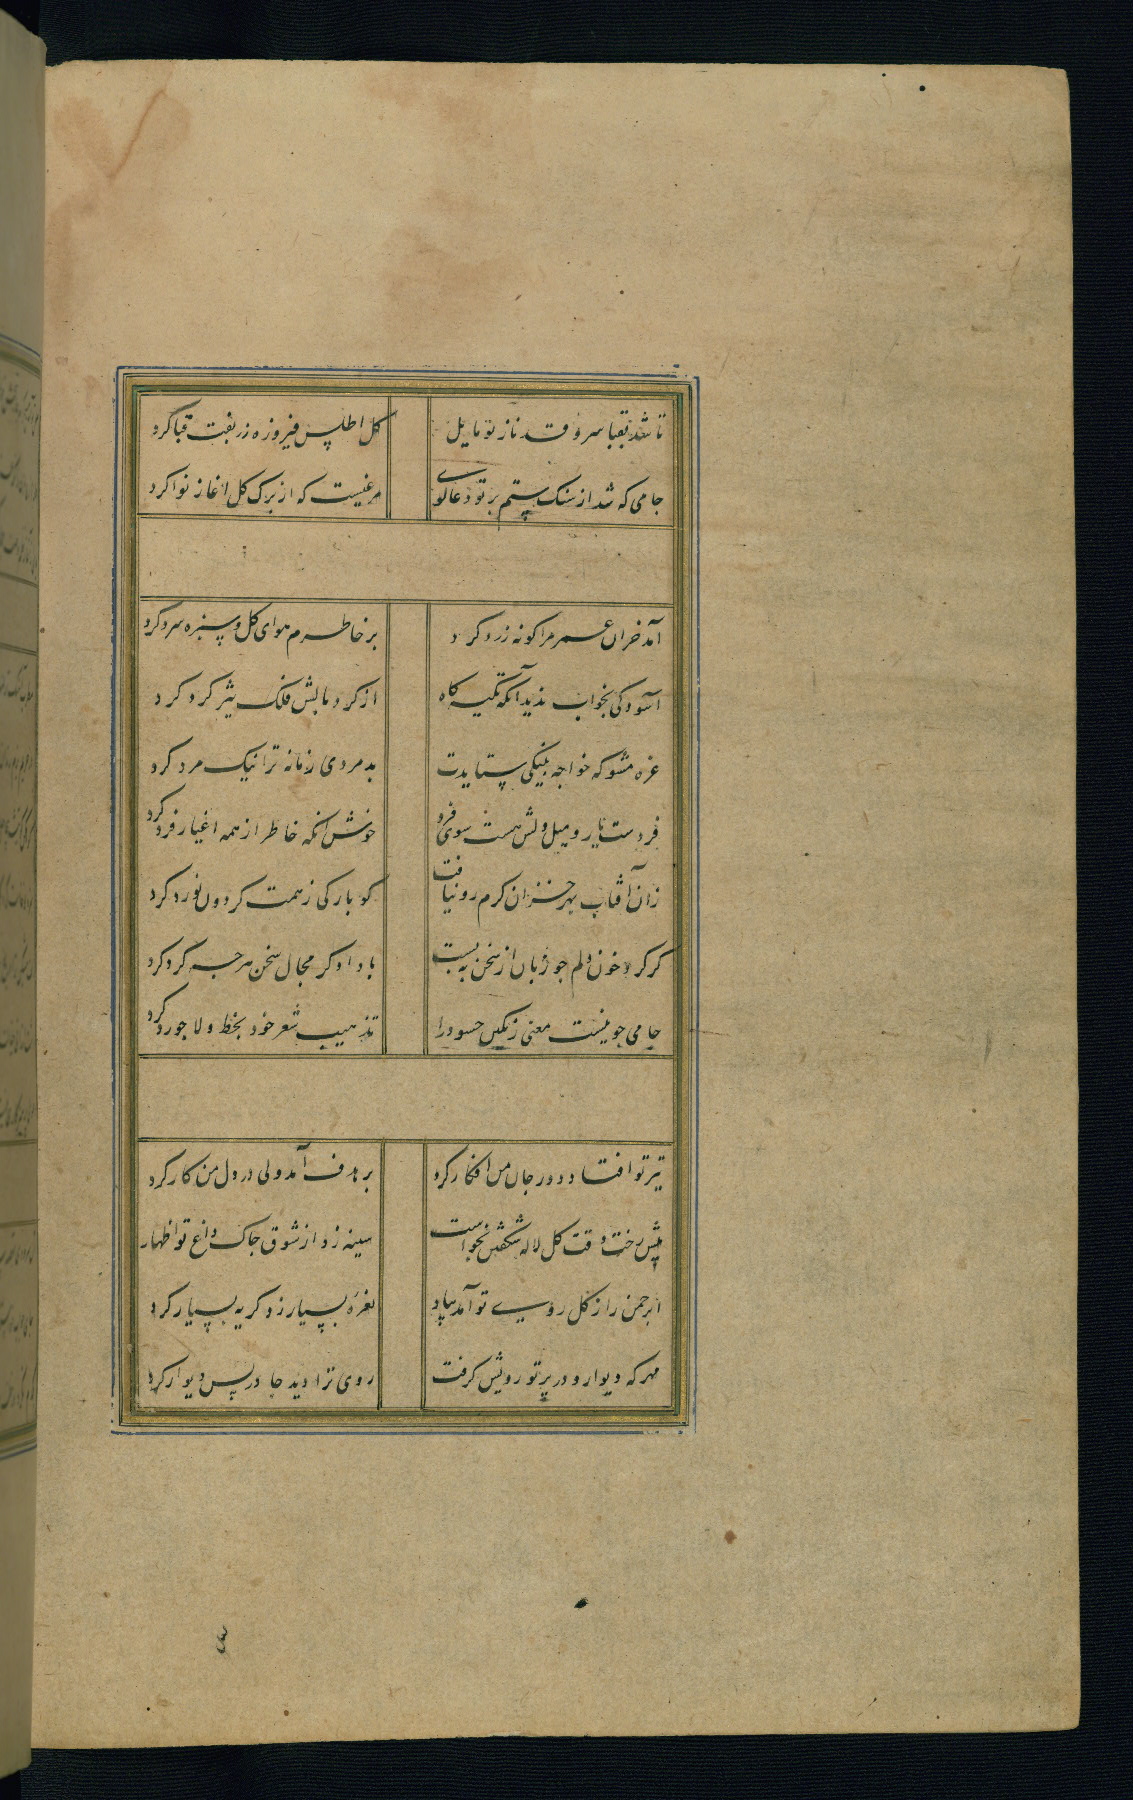 تا شد بقبا سرو قد ناز تو مایل کل اطلس فیروزه زربفت قبا کرد
جامی که شد از سنک ستم بر تو دعا کوی مرغیست که از برک کل اغاز نوا کرد
آمد خزان عمر مرا کونه زرد کرد بر خاطرم هوای کل و سبزه سرد کرد
آسودکی بخواب ندید آنکه تکیه کاه از کرد بالش فلک تیز کرد کرد
غره مشو که خواجه بنیکی ستایدت بد مردی زمانه ترا نیک مرد کرد
فردست یار و میل دلش هست سوی فرد خوش آنکه خاطر از همه اغیار فرد کرد
زان آفتاب بهر خزان کرم رو نیافت کو بارکی ز همت کردون نورد کرد
کر کرد خون دلم جو زبان از سخن ببست با داد کر مجال سخن هر جه کرد کرد
جامی جو نیست معنی رنکین حسود را تذهیب شعر خود بخط و لاجورد کرد
تیر تو افتاد دور جان من افکار کرد بر هدف آمد ولی در دل من کار کرد
پیش رخت وقت کل لاله شکفتن نخواست سینه زد از شوق جاک داغ تو اظهار
ابر جمن را ز کل روی تو آمد بیاد نعره بسیار زد کریه بسیار کرد
مهر که دیوار و در پرتو رویش کرفت روی ترا دید جا در پس دیوار کرد